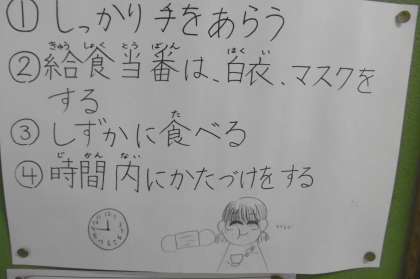 ① しっかり手をあらう
② 給食当番は、白衣、マスクを
する
③ しずかに食べる
④ 時間内にかたづけをする